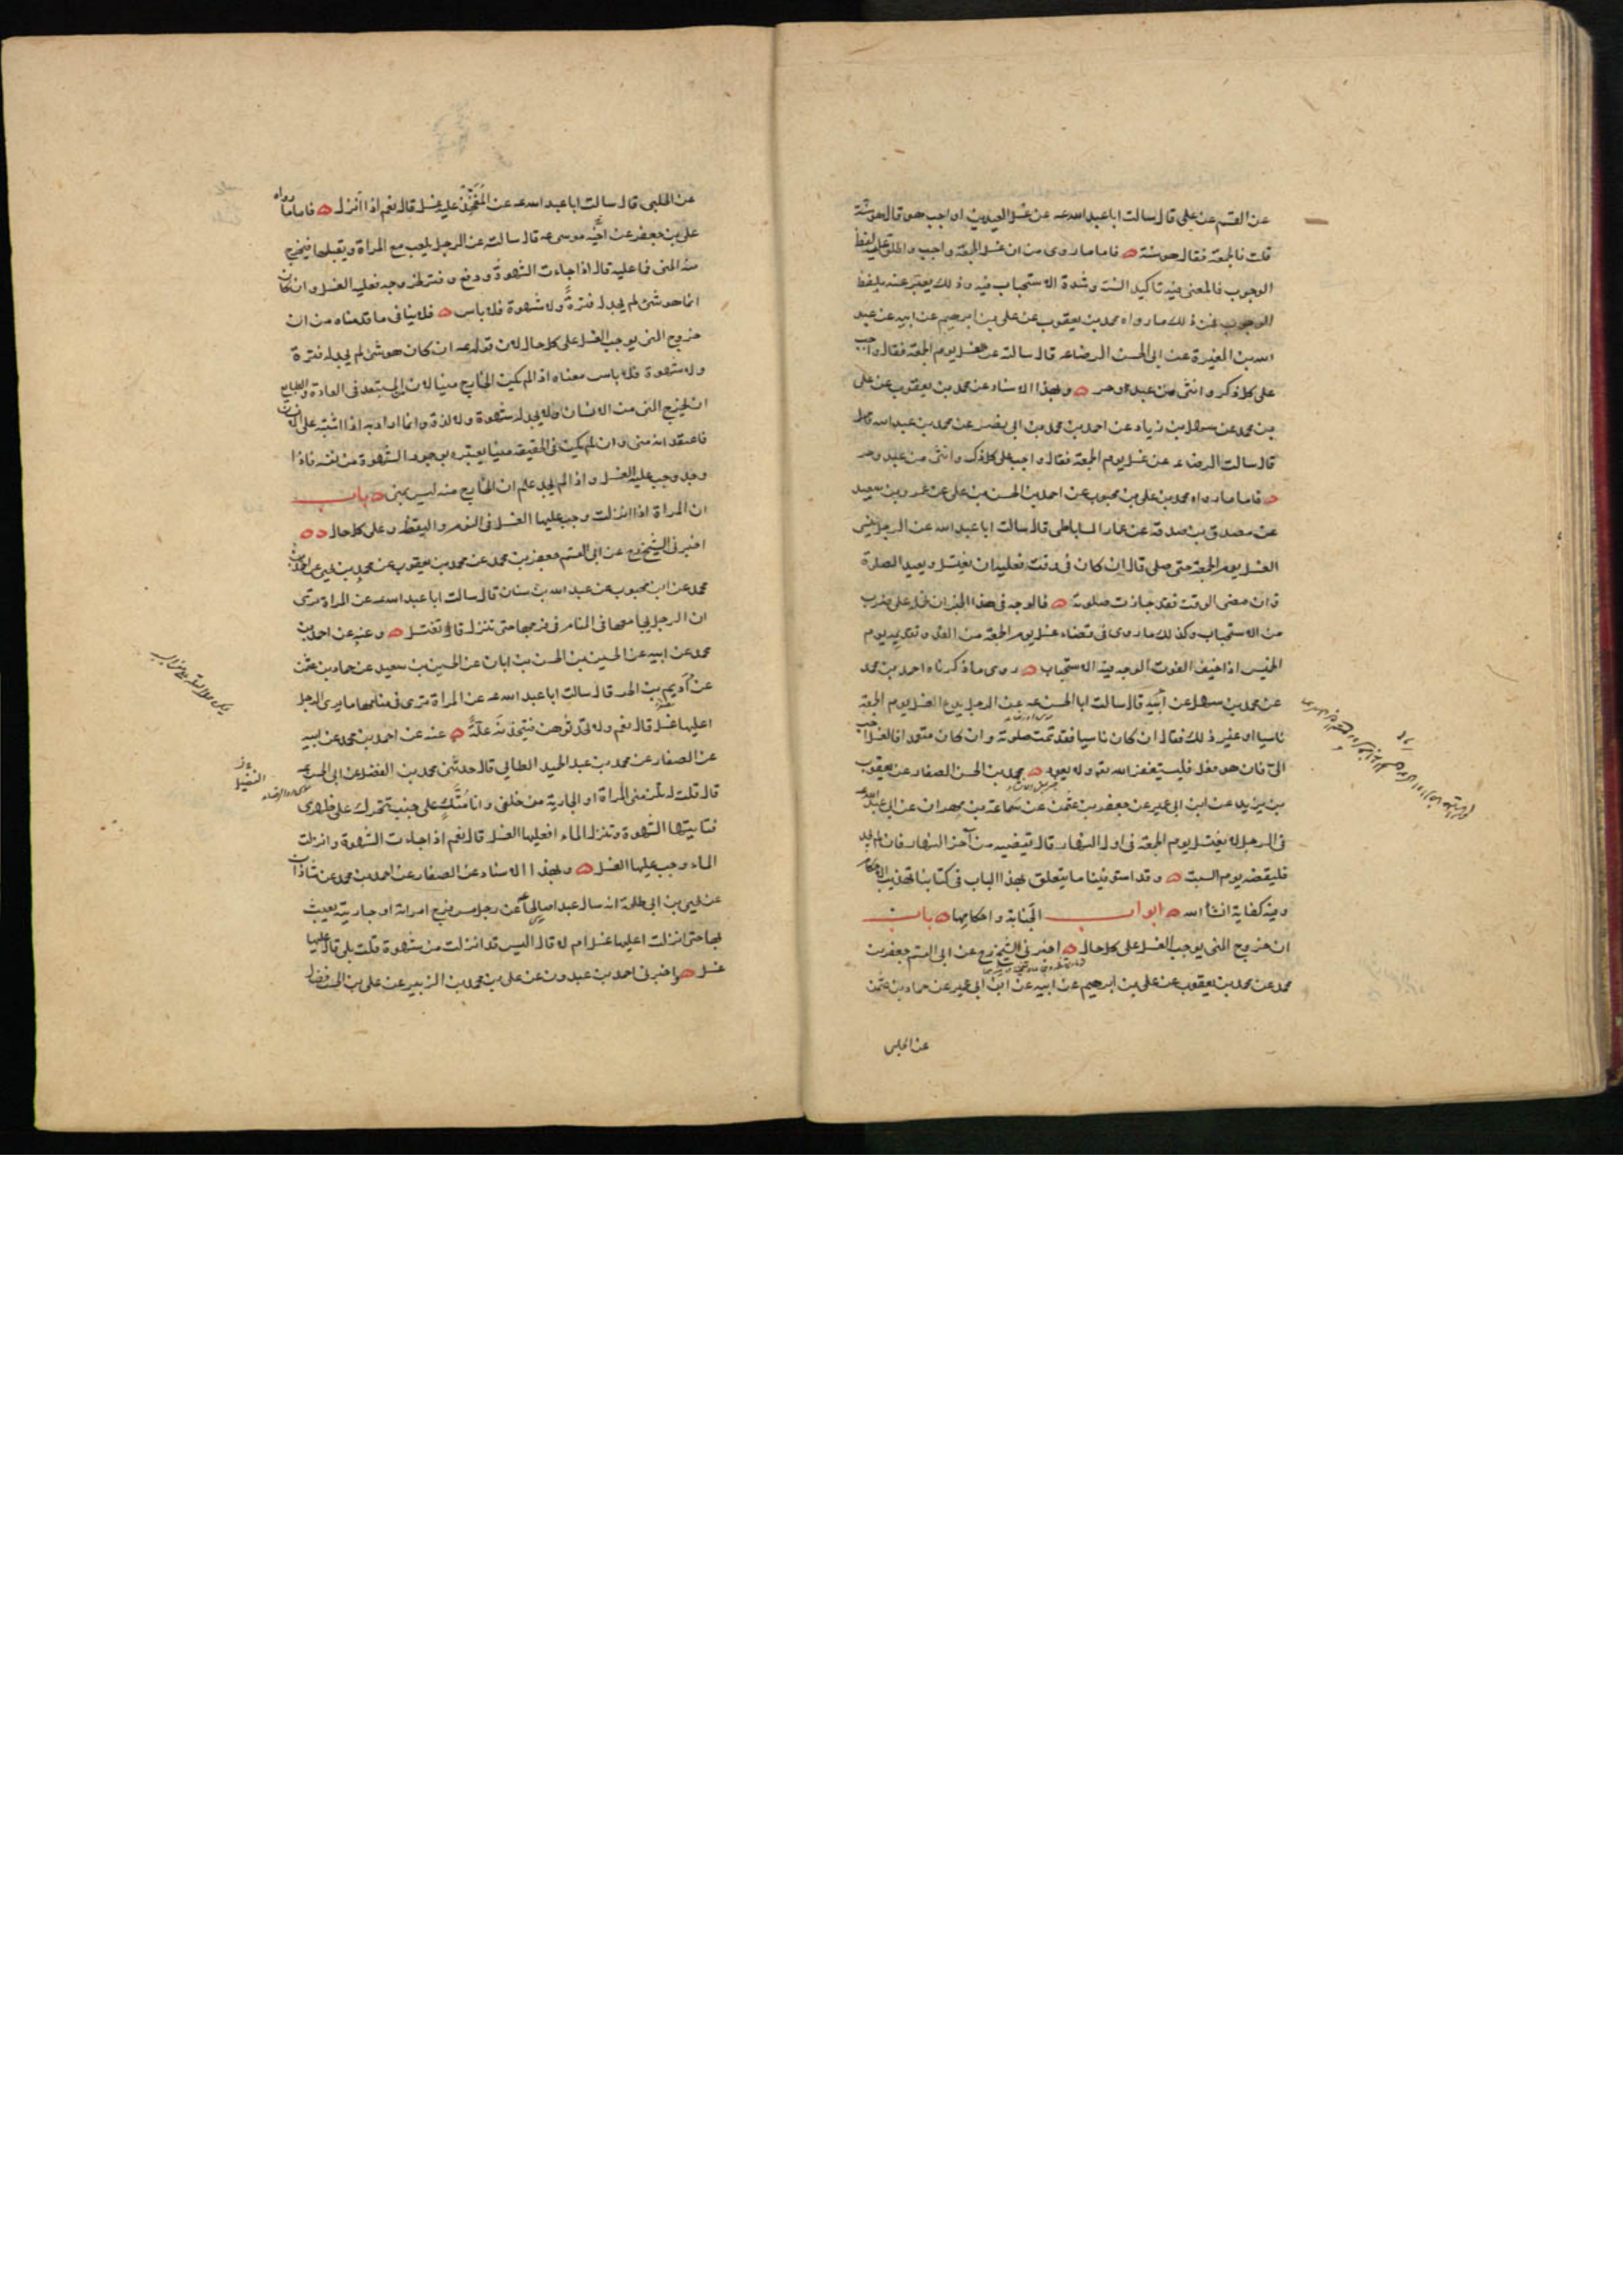 عن القسم عن علی قال سالت ابا عبد الله عه عن غسل العیدین اواجب هو قال هو سنة
قلت فالجمعة فقال هو سنة ه فاما ما روی من ان غسل الجمعة واجب واطلق علیه لفظ
الوجوب فالمعنی فیه تاکید السنة وشدة الاستحباب فیه وذلک یعبر عنه بلفظ
الوجوب فمن ذلک ما رواه محمد بن یعقوب عن علی بن ابرهیم عن ابیه عن عبد
الله بن المغیرة عن ابی الحسن الرضا عه قال سالته عن الغسل یوم الجمعة فقال واجب
علی کل ذکر وانثی من عبد او حر ه وبهذا الاسناد عن محمد بن یعقوب عن علی
بن محمد عن سهل بن زیاد عن احمد بن محمد بن ابی نصر عن محمد بن عبد الله قال
قال سالت الرضا عه عن غسل یوم الجمعة فقال واجب علی کل ذکر وانثی من عبد وحر
ه فاما ما رواه محمد بن علی بن محبوب عن احمد بن الحسن بن علی عن عمرو بن سعید
عن مصدق بن صدقة عن عمار الساباطی قال سالت ابا عبد الله عن الرجل ینسی
الغسل یوم الجمعة حتی صلی قال ان کان فی وقت فعلیه ان یغتسل ویعید الصلوة
وان مضی الوقت فقد جازت صلوته ه فالوجه فی هذا الخبر ان نحمله علی ضرب
من الاستحباب وکذلک ما روی فی قضاء غسل یوم الجمعة من الغد وتقدیمه یوم
الخمیس اذا خیف الفوت الوجه فیه الاستحباب ه روی ما ذکرناه احمد بن محمد
عن محمد بن سهل عن ابیه قال سالت ابا الحسن عه عن الرجل یدع الغسل یوم الجمعة
ناسیا او غیر ذلک فقال ان کان ناسیا فقد تمت صلوته وان کان متعمدا فالغسل احب
الی فان هو فعل فلیستغفر الله تعه ولا یعود ه محمد بن الحسن الصفار عن یعقوب
بن یزید عن ابن ابی عمیر عن جعفر بن عثمن عن سماعة بن مهران عن ابی عبد الله عه
فی الرجل لا یغتسل یوم الجمعة فی اول النهار قال یقضیه من آخر النهار فان لم یجد
فلیقضه یوم السبت ه وقد استوفینا ما یتعلق بهذا الباب فی کتابنا تهذیب الاحکام
وفیه کفایة انشا الله ه ابواب الجنابة واحکامها ه باب
ان خروج المنی یوجب الغسل علی کل حال ه اخبرنی الشیخ ره عن ابی القسم جعفر بن
محمد عن محمد بن یعقوب عن علی بن ابرهیم عن ابیه عن ابن ابی عمیر عن حماد بن عثمن
عن الحلبی
عن الحلبی قال سالت ابا عبد الله عه عن المفخذ علیه غسل قال نعم اذا انزل ه فاما ما رواه
علی بن جعفر عن اخیه موسی عه قال سالته عن الرجل یلعب مع المراة ویقبلها فیخرج
منه المنی فما علیه قال اذا جاءت الشهوة ودفع وفتر لخروجه فعلیه الغسل وان کان
انما هو شئ لم یجد له فترة ولا شهوة فلا باس ه فلا ینافی ما قدمناه من ان
خروج المنی یوجب الغسل علی کل حال لان قوله عه ان کان هو شئ لم یجد له فترة
ولا شهوة فلا باس معناه اذا لم یکن الخارج منیا لان المستبعد فی العادة والطبایع
ان یخرج المنی من الانسان ولا یجد له شهوة ولا لذة وانما اراد به اذا اشتبه علی الانسان
فاعتقد انه منی وان لم یکن فی الحقیقة منیا یعتبره بوجود الشهوة من نفسه فاذا
وجد وجب علیه الغسل واذا لم یجد علم ان الخارج منه لیس بمنی ه باب
ان المراة اذا انزلت وجب علیها الغسل فی النوم والیقظة وعلی کل حال ه ه
اخبرنی الشیخ ره عن ابی القسم جعفر بن محمد عن محمد بن یعقوب عن محمد بن یحیی عن احمد بن
محمد عن ابن محبوب عن عبد الله بن سنان قال سالت ابا عبد الله عه عن المراة تری
ان الرجل یجامعها فی المنام فی فرجها حتی تنزل قال تغتسل ه وعنه عن احمد بن
محمد عن ابیه عن الحسین بن الحسن بن ابان عن الحسین بن سعید عن حماد بن عثمن
عن ادیم بن الحر قال سالت ابا عبد الله عه عن المراة تری فی منامها ما یری الرجل
اعلیها غسل قال نعم ولا تحدثوهن فیتخذنه علة ه عنه عن احمد بن محمد عن ابیه
عن الصفار عن محمد بن عبد الحمید الطائی قال حدثنی محمد بن الفضل عن ابی الحسن عه
قال قلت له تلزمنی المراة او الجاریة من خلفی وانا متک علی جنب فتتحرک علی ظهری
فتاتیها الشهوة وتنزل الماء افعلیها الغسل قال نعم اذا جاءت الشهوة وانزلت
الماء وجب علیها الغسل ه وبهذا الاسناد عن الصفار عن احمد بن محمد عن شاذان
عن یحیی بن ابی طلحة انه سال عبدا صالحا عن رجل مس فرج امراته او جاریته یعبث
بها حتی انزلت اعلیها غسل ام لا قال الیس قد انزلت من شهوة قلت بلی قال علیها
غسل ه واخبرنی احمد بن عبدون عن علی بن محمد بن الزبیر عن علی بن الحسن فضال
الفضیل